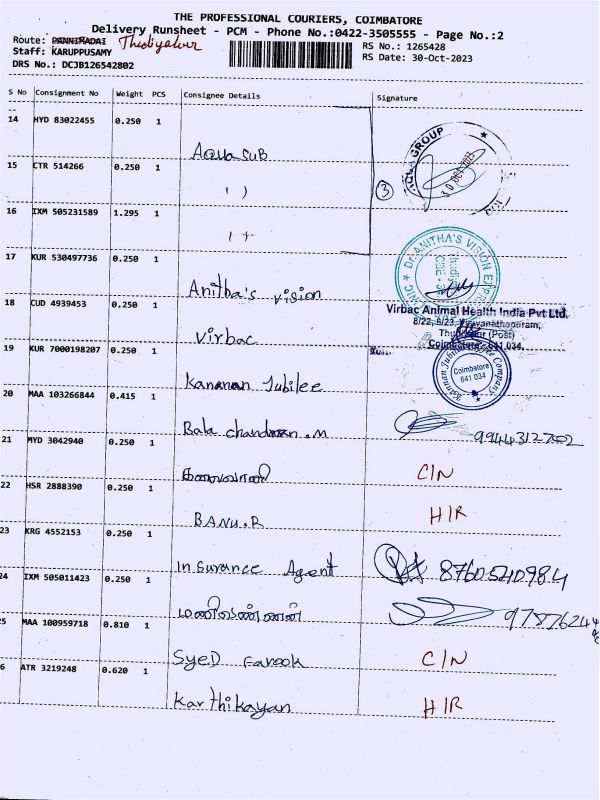 THE PROFESSIONAL COURIERS, COIMBATORE
Delivery Runsheet - PCM - Phone No.:0422-3505555 - Page No.:2
Route: PANNIMADAI Thudiyalur
RS No.: 1265428
Staff: KARUPPUSAMY
RS Date: 30-Oct-2023
DRS No.: DCJB126542802
S No Consignment No Weight PCS Consignee Details Signature
14 HYD 83022455 0.250 1 Aqua SUB
15 CTR 514266 0.250 1 ,, 3
AQUA GROUP
30 OCT 2023
16 IXM 505231589 1.295 1 ,,
17 KUR 530497736 0.250 1 Anitha's vision
Dr. ANITHA'S VISION
18 CUD 4939453 0.250 1 Virbac
Virbac Animal Health India Pvt Ltd.
8/22, 8/23, Viswanathapuram,
(Post)
Coimbatore - 641 034.
19 KUR 7000198207 0.250 1 Kannan Jubilee
Kannan Jubilee Coffee Company
Coimbatore
641 034
20 MAA 103266844 0.415 1 Bala chandran .M
21 MYD 3042940 0.250 1 C/N
22 HSR 2888390 0.250 1 BANU.R H/R
23 KRG 4552153 0.250 1 Insurance Agent 8760540984
24 IXM 505011423 0.250 1 மணிவண்ணன்
25 MAA 100959718 0.810 1 Syed Farook C/N
26 ATR 3219248 0.620 1 Karthikayan H/R